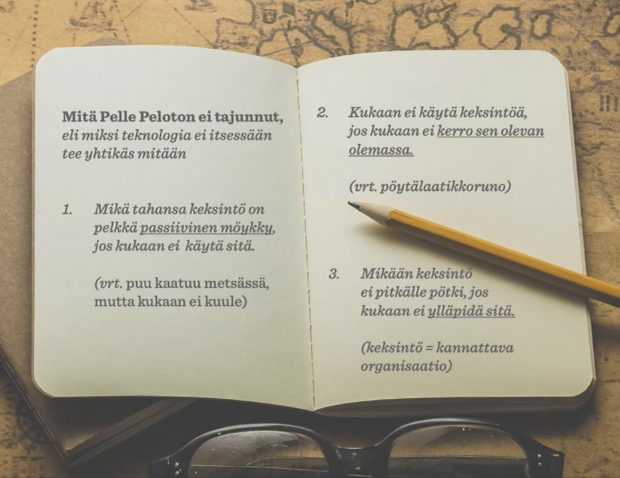 Mitä Pelle Peloton ei tajunnut,
eli miksi teknologia ei itsessään
tee yhtikäs mitään
1. Mikä tahansa keksintö on
pelkkä passiivinen möykky,
jos kukaan ei käytä sitä.
(vrt. puu kaatuu metsässä,
mutta kukaan ei kuule)
2. Kukaan ei käytä keksintöä,
jos kukaan ei kerro sen olevan
olemassa.
(vrt. pöytälaatikkoruno)
3. Mikään keksintö
ei pitkälle pötki, jos
kukaan ei ylläpidä sitä.
(keksintö = kannattava
organisaatio)